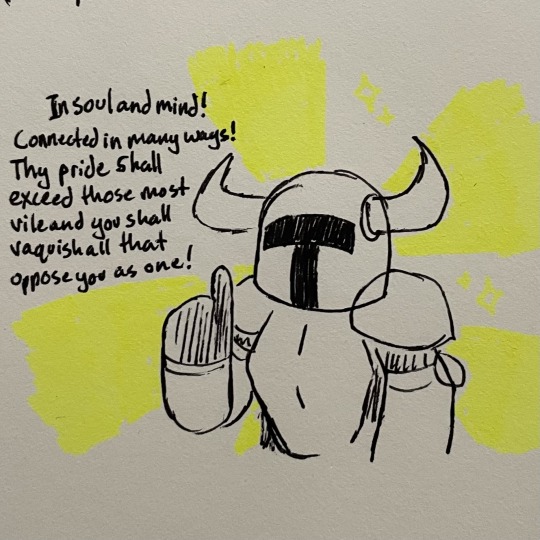 In soul and mind!
Connected in many ways!
Thy pride shall
exceed those most
vile and you shall
vaquish all that
oppose you as one!